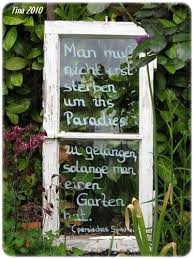 Tina 2010
Man muß
nicht erst
sterben
um ins
Paradies
zu gelangen,
solange man
einen
Garten
hat.
(persisches Sprichw.)